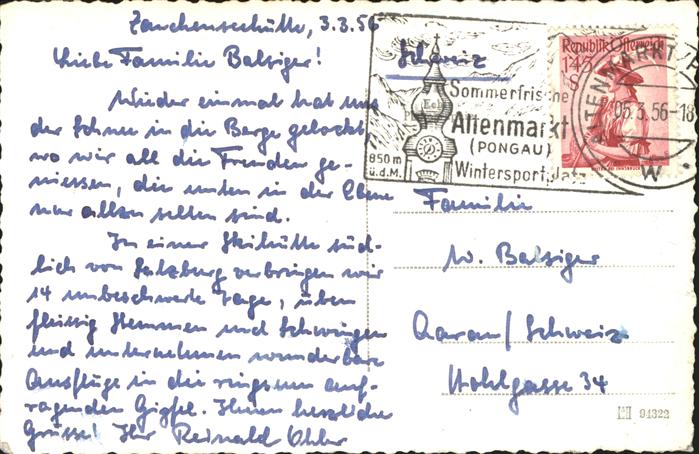 Zauchenseehütte, 3.3.56
Liebe Familie Balsiger!
Wieder einmal hat uns
der Schnee in die Berge gelockt,
wo wir all die Freuden ge-
niessen, die unten in der Ebene
nur allzu selten sind.
In einer Skihütte süd-
lich von Salzburg verbringen wir
14 unbeschwerte Tage, üben
fleissig Stemmen und Schwingen
und unternehmen wunderbare
Ausflüge in die ringsum auf-
ragenden Gipfel. Ihnen herzliche
Grüsse! Ihr Reinald
Schweiz
Sommerfrische
Altenmarkt
(PONGAU)
850 m
ü.d.M.
Wintersportplatz
Republik Österreich
1'45
S
ALTENMARKT
05.3.56-18
W
Familie
W. Balsiger
Aarau/Schweiz
Hohlgasse 34
94322